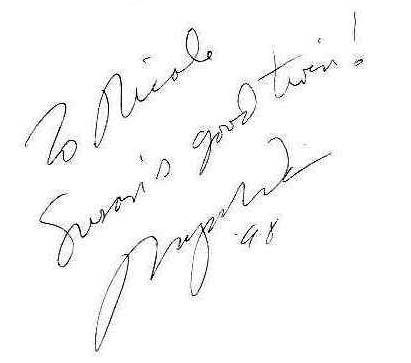 To Nicole
Susan's good twin!
'98